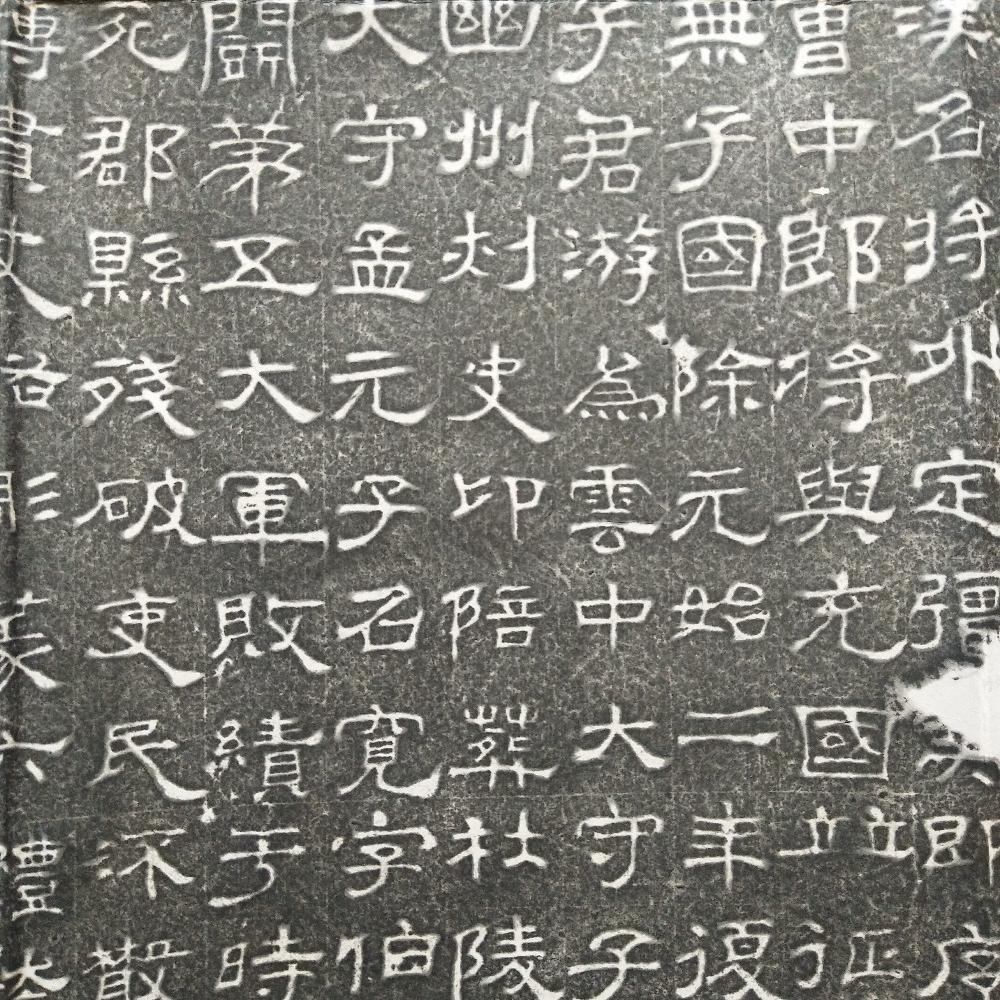 漢名將外定彊即序
曹中郎將與充國竝征
無子國除元始二年復
子君游為雲中大守子
幽州刾史印陪葬杜陵
大守孟元子名寬字伯
鬪第五大軍敗績于時
死郡縣殘破吏民散
六